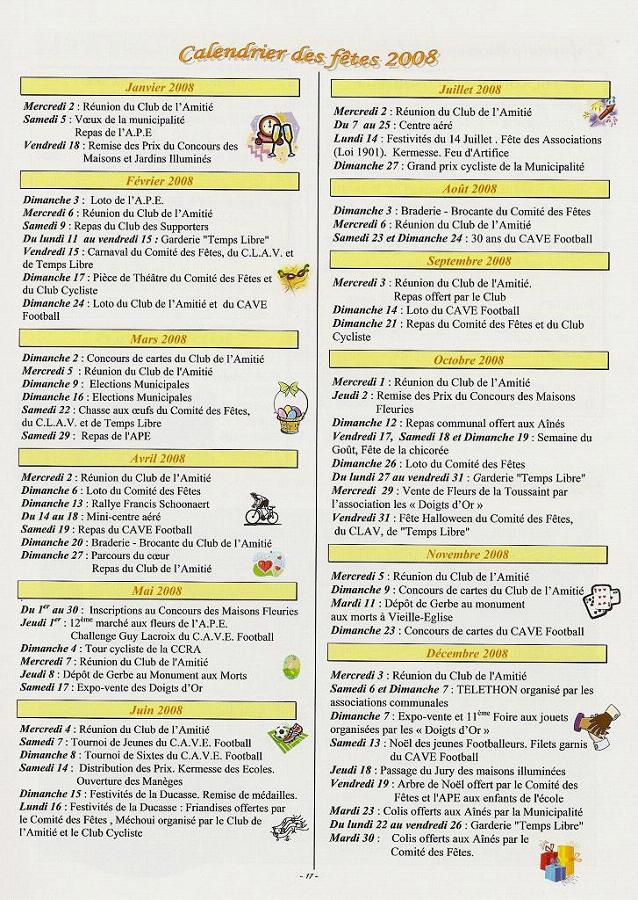 Calendrier des fêtes 2008
Janvier 2008
Mercredi 2 : Réunion du Club de l'Amitié
Samedi 5 : Vœux de la municipalité
Repas de l'A.P.E
Vendredi 18 : Remise des Prix du Concours des
Maisons et Jardins Illuminés
Février 2008
Dimanche 3 : Loto de l'A.P.E.
Mercredi 6 : Réunion du Club de l'Amitié
Samedi 9 : Repas du Club des Supporters
Du lundi 11 au vendredi 15 : Garderie "Temps Libre"
Vendredi 15 : Carnaval du Comité des Fêtes, du C.L.A.V. et
de Temps Libre
Dimanche 17 : Pièce de Théâtre du Comité des Fêtes et
du Club Cycliste
Dimanche 24 : Loto du Club de l'Amitié et du CAVE
Football
Mars 2008
Dimanche 2 : Concours de cartes du Club de l'Amitié
Mercredi 5 : Réunion du Club de l'Amitié
Dimanche 9 : Elections Municipales
Dimanche 16 : Elections Municipales
Samedi 22 : Chasse aux œufs du Comité des Fêtes,
du C.L.A.V. et de Temps Libre
Samedi 29 : Repas de l'APE
Avril 2008
Mercredi 2 : Réunion du Club de l'Amitié
Dimanche 6 : Loto du Comité des Fêtes
Dimanche 13 : Rallye Francis Schoonaert
Du 14 au 18 : Mini-centre aéré
Samedi 19 : Repas du CAVE Football
Dimanche 20 : Braderie - Brocante du Club de l'Amitié
Dimanche 27 : Parcours du cœur
Repas du Club de l'Amitié
Mai 2008
Du 1er au 30 : Inscriptions au Concours des Maisons Fleuries
Jeudi 1er : 12ème marché aux fleurs de l'A.P.E.
Challenge Guy Lacroix du C.A.V.E. Football
Dimanche 4 : Tour cycliste de la CCRA
Mercredi 7 : Réunion du Club de l'Amitié
Jeudi 8 : Dépôt de Gerbe au Monument aux Morts
Samedi 17 : Expo-vente des Doigts d'Or
Juin 2008
Mercredi 4 : Réunion du Club de l'Amitié
Samedi 7 : Tournoi de Jeunes du C.A.V.E. Football
Dimanche 8 : Tournoi de Sixtes du C.A.V.E. Football
Samedi 14 : Distribution des Prix. Kermesse des Ecoles.
Ouverture des Manèges
Dimanche 15 : Festivités de la Ducasse. Remise de médailles.
Lundi 16 : Festivités de la Ducasse : Friandises offertes par
le Comité des Fêtes , Méchoui organisé par le Club de
l'Amitié et le Club Cycliste
Juillet 2008
Mercredi 2 : Réunion du Club de l'Amitié
Du 7 au 25 : Centre aéré
Lundi 14 : Festivités du 14 Juillet . Fête des Associations
(Loi 1901). Kermesse. Feu d'Artifice
Dimanche 27 : Grand prix cycliste de la Municipalité
Août 2008
Dimanche 3 : Braderie - Brocante du Comité des Fêtes
Mercredi 6 : Réunion du Club de l'Amitié
Samedi 23 et Dimanche 24 : 30 ans du CAVE Football
Septembre 2008
Mercredi 3 : Réunion du Club de l'Amitié.
Repas offert par le Club
Dimanche 14 : Loto du CAVE Football
Dimanche 21 : Repas du Comité des Fêtes et du Club
Cycliste
Octobre 2008
Mercredi 1 : Réunion du Club de l'Amitié
Jeudi 2 : Remise des Prix du Concours des Maisons
Fleuries
Dimanche 12 : Repas communal offert aux Aînés
Vendredi 17, Samedi 18 et Dimanche 19 : Semaine du
Goût, Fête de la chicorée
Dimanche 26 : Loto du Comité des Fêtes
Du lundi 27 au vendredi 31 : Garderie "Temps Libre"
Mercredi 29 : Vente de Fleurs de la Toussaint par
l'association les « Doigts d'Or »
Vendredi 31 : Fête Halloween du Comité des Fêtes,
du CLAV, de "Temps Libre"
Novembre 2008
Mercredi 5 : Réunion du Club de l'Amitié
Dimanche 9 : Concours de cartes du Club de l'Amitié
Mardi 11 : Dépôt de Gerbe au monument
aux morts à Vieille-Eglise
Dimanche 23 : Concours de cartes du CAVE Football
Décembre 2008
Mercredi 3 : Réunion du Club de l'Amitié
Samedi 6 et Dimanche 7 : TELETHON organisé par les
associations communales
Dimanche 7 : Expo-vente et 11ème Foire aux jouets
organisées par les « Doigts d'Or »
Samedi 13 : Noël des jeunes Footballeurs. Filets garnis
du CAVE Football
Jeudi 18 : Passage du Jury des maisons illuminées
Vendredi 19 : Arbre de Noël offert par le Comité des
Fêtes et l'APE aux enfants de l'école
Mardi 23 : Colis offerts aux Aînés par la Municipalité
Du lundi 22 au vendredi 26 : Garderie "Temps Libre"
Mardi 30 : Colis offerts aux Aînés par le
Comité des Fêtes.
- 17 -